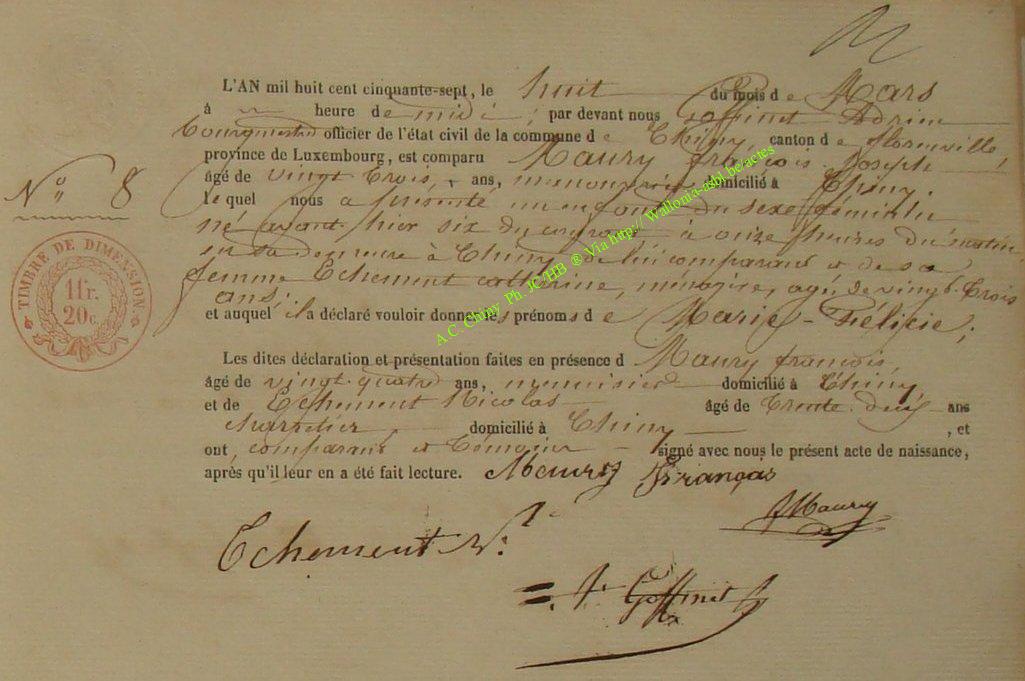 L'AN mil huit cent cinquante-sept, le huit du mois de Mars
à heure de midi; par devant nous Goffinet Adrien
Bourgmestre officier de l'état civil de la commune de Chiny, canton de florenville,
province de Luxembourg, est comparu Maury françois Joseph
âgé de vingt trois, ans, menuisier domicilié à Chiny.
N° 8
lequel nous a présenté un enfant du sexe féminin
né avant hier six du courant à onze heures du matin
en sa demeure à Chiny de lui comparant et de sa
femme Echement catherine, ménagère, agée de vingt-trois
ans;
et auquel il a déclaré vouloir donner les prénoms de Marie-Félicie;
TIMBRE DE DIMENSION
1 fr.
20 c.
Les dites déclaration et présentation faites en présence d Maury françois,
âgé de vingt quatre ans, menuisier domicilié à Chiny
et de Echement Nicolas âgé de trente deux ans
charpentier, domicilié à Chiny , et
ont, comparant et témoins signé avec nous le présent acte de naissance,
après qu'il leur en a été fait lecture. Maury François
JMaury
Echement N.
A. Goffinet
A.C. Chiny Ph. JC/HB ® Via http:// Wallonia-asbl.be/actes